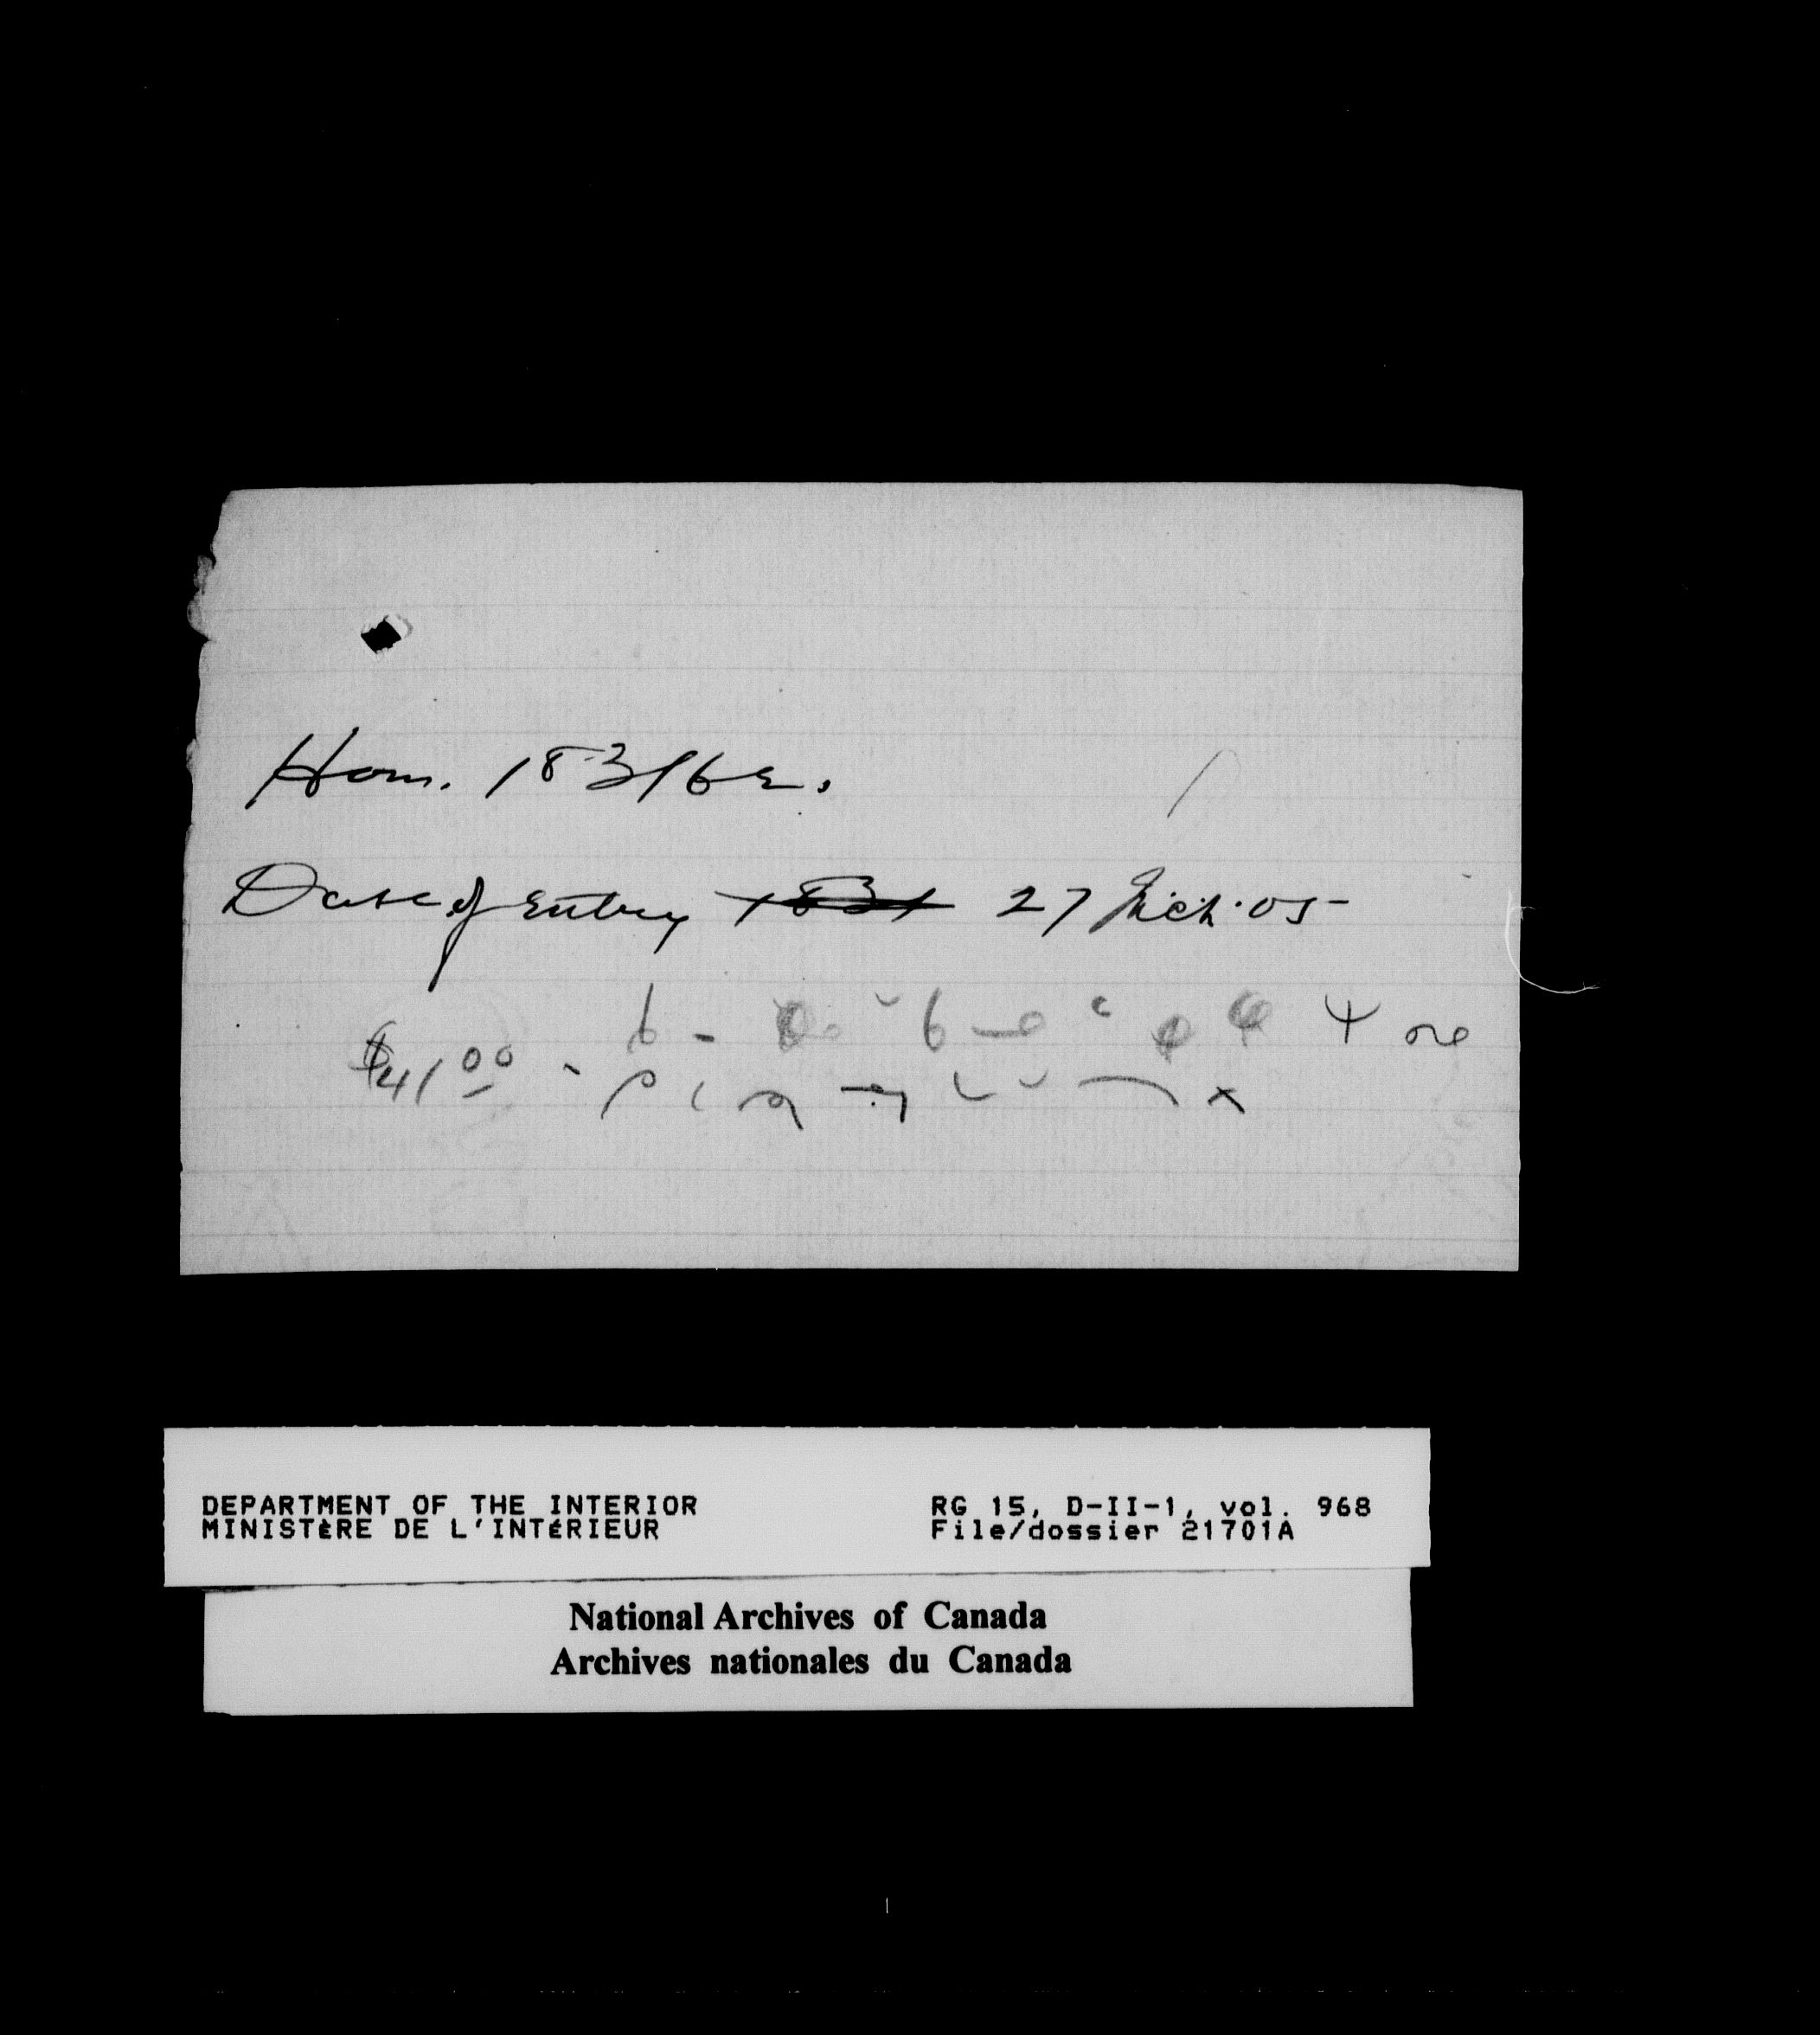 Hom. 183162.
Date of Entry 1831 27 Mch. 05
$41 00
DEPARTMENT OF THE INTERIOR
MINISTÈRE DE L'INTÉRIEUR
RG 15, D-II-1, vol. 968
File/dossier 21701A
National Archives of Canada
Archives nationales du Canada